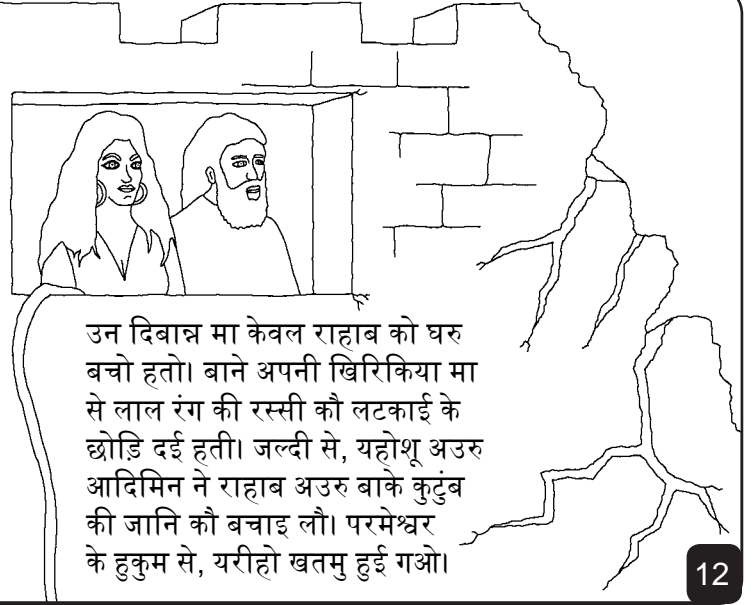 उन दिबान्न मा केवल राहाब को घरु
बचो हतो। बाने अपनी खिरिकिया मा
से लाल रंग की रस्सी कौ लटकाई के
छोड़ि दई हती। जल्दी से, यहोशू अउरु
आदिमिन ने राहाब अउरु बाके कुटुंब
की जानि कौ बचाइ लौ। परमेश्वर
के हुकुम से, यरीहो खतमु हुई गओ।
12